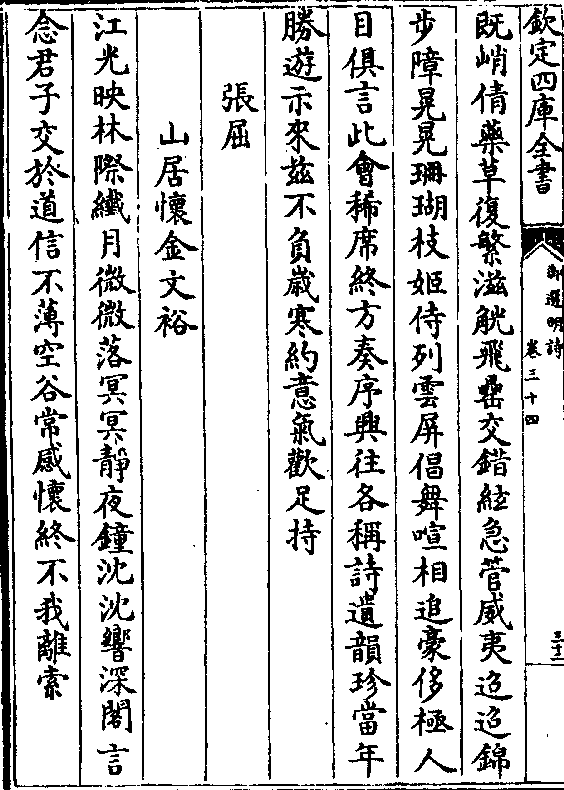 欽定四庫全書
御選明詩
卷三十四
三十二
既峭倩藥草復繁滋觥飛罍交錯絃急管威夷迢迢錦
步障晃晃珊瑚枝姬侍列雲屏倡舞喧相追豪侈極人
目俱言此會稀席終方奏序興往各稱詩遺韻珍當年
勝遊示來兹不負嵗寒約意氣歡足持
張屈
山居懷金文裕
江光映林際纖月微微落冥冥靜夜鐘沈沈響深閣言
念君子交於道信不薄空谷常感懷終不我離索